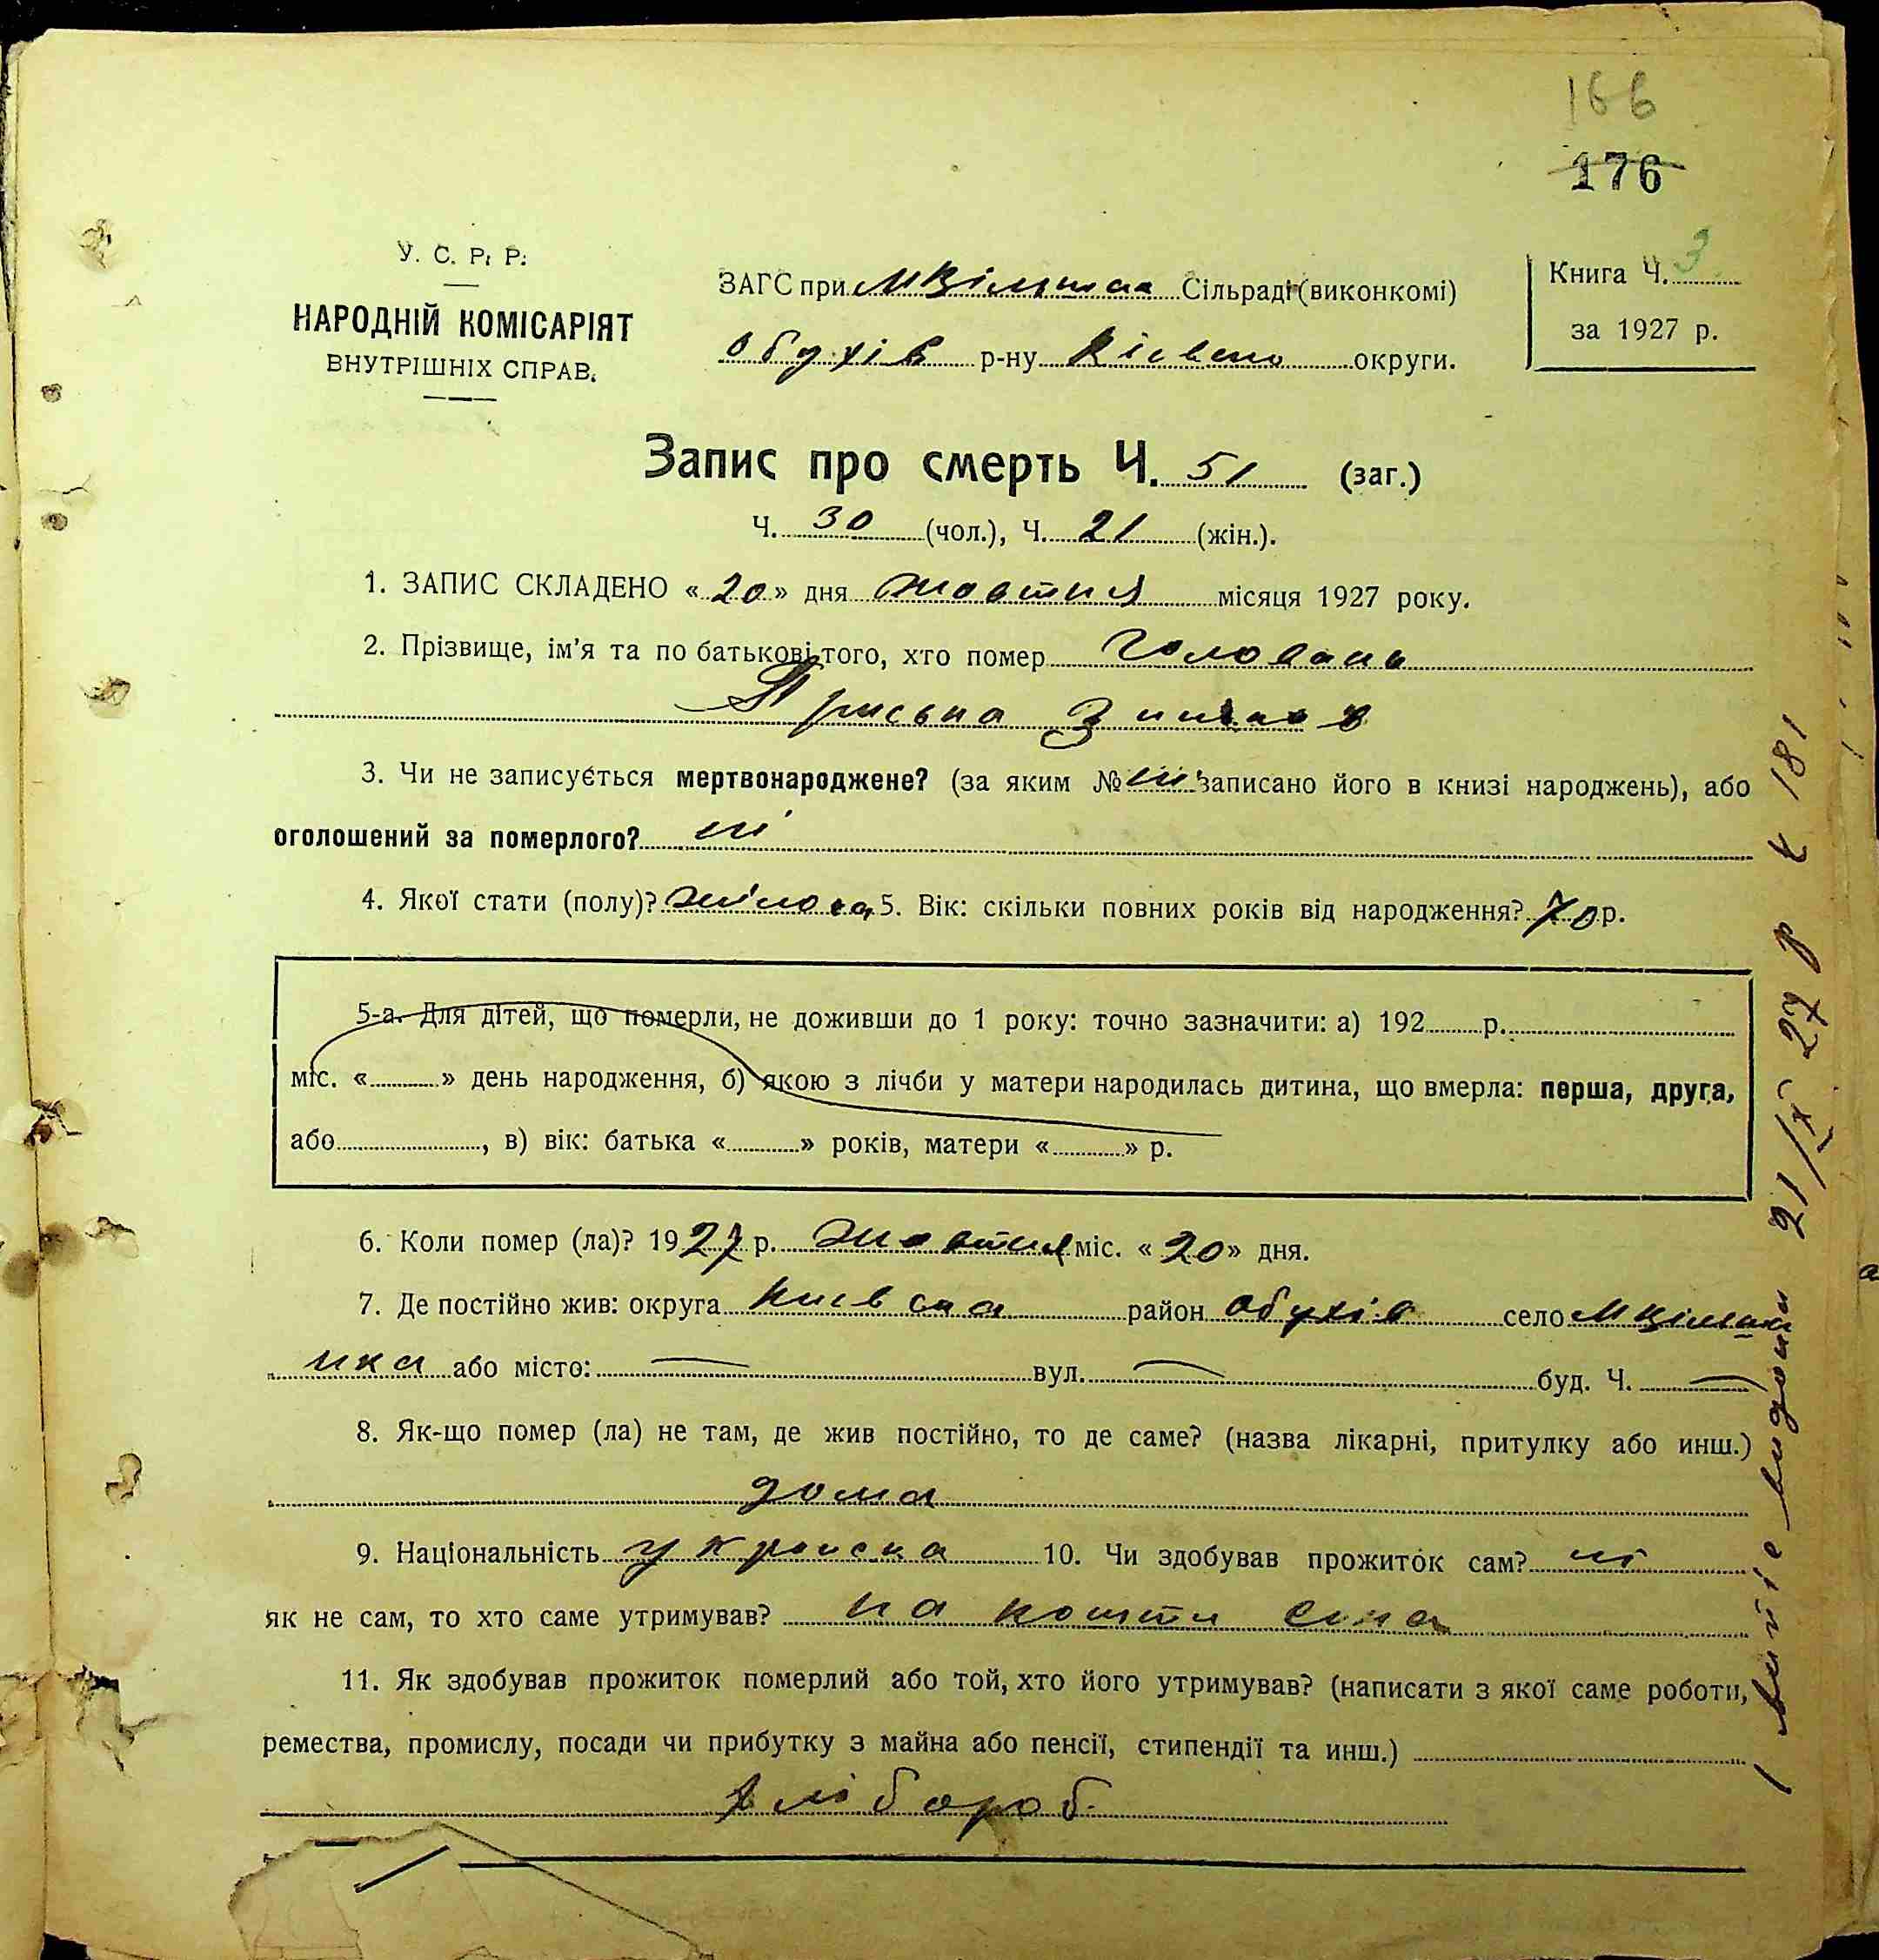 166
176
У. С. Р. Р.
НАРОДНІЙ КОМІСАРІЯТ
ВНУТРІШНІХ СПРАВ.
ЗАГС при Сільраді (виконкомі)
Обухів р-ну округи.
Книга Ч. 3
за 1927 р.
Запис про смерть Ч. 51 (заг.)
Ч. 30 (чол.), Ч. 21 (жін.).
1. ЗАПИС СКЛАДЕНО «20» дня жовтня місяця 1927 року.
2. Прізвище, ім'я та по батькові того, хто помер Головань
Приська
3. Чи не записується мертвонароджене? (за яким № ні записано його в книзі народжень), або
оголошений за померлого? ні
4. Якої стати (полу)? жіноча 5. Вік: скільки повних років від народження? 70 р.
5-а. Для дітей, що померли, не доживши до 1 року: точно зазначити: а) 192 р.
міс. « » день народження, б) якою з лічби у матери народилась дитина, що вмерла: перша, друга,
або , в) вік: батька « » років, матери « » р.
6. Коли помер (ла)? 1927 р. жовтня міс. «20» дня.
7. Де постійно жив: округа Киевска район Обухів село
нка або місто: — вул. — буд. Ч. —
8. Як-що помер (ла) не там, де жив постійно, то де саме? (назва лікарні, притулку або инш.)
дома
9. Національність украиска 10. Чи здобував прожиток сам? ні
як не сам, то хто саме утримував? на кошти сина
11. Як здобував прожиток померлий або той, хто його утримував? (написати з якої саме роботи,
ремества, промислу, посади чи прибутку з майна або пенсії, стипендії та инш.)
хлібороб.
витяг видани 21/X 27 р 181